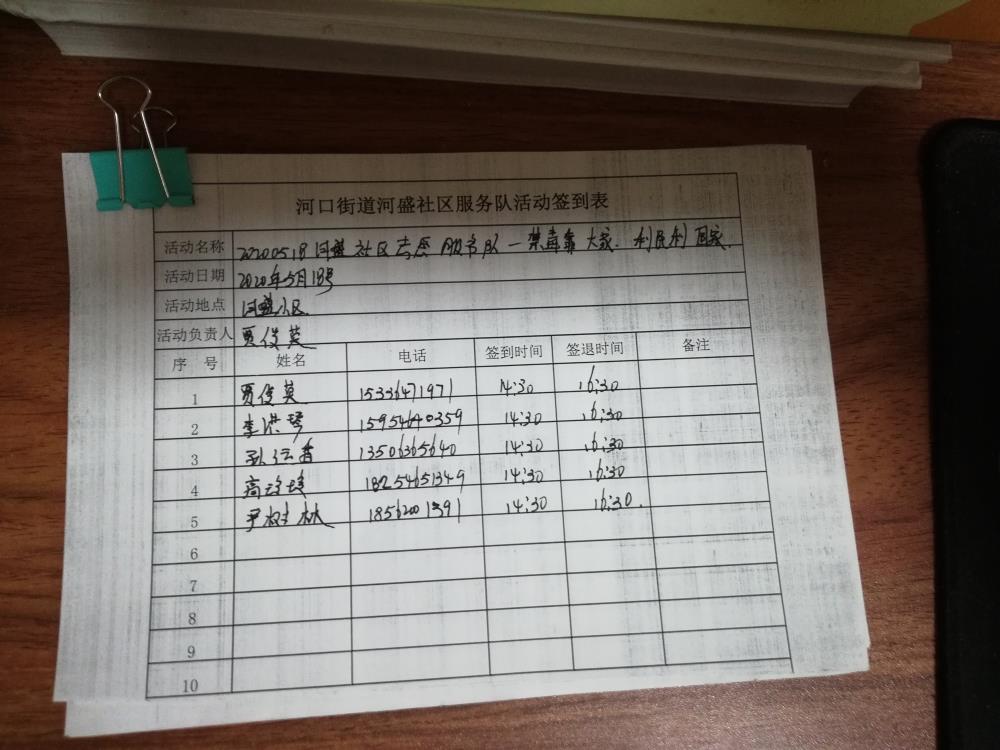 河口街道河盛社区服务队活动签到表
活动名称 20200518河盛社区志愿服务队—禁毒靠大家.利民利国家.
活动日期 2020年5月18号
活动地点 河盛小区
活动负责人 贾俊英
序号 姓名 电话 签到时间 签退时间 备注
1 贾俊英 15336471971 14:30 16:30
2 李洪琴 15954640359 14:30 16:30
3 孙云香 13506365640 14:30 16:30
4 高 18254651349 14:30 16:30
5 尹树林 18562001391 14:30 16:30.
6
7
8
9
10